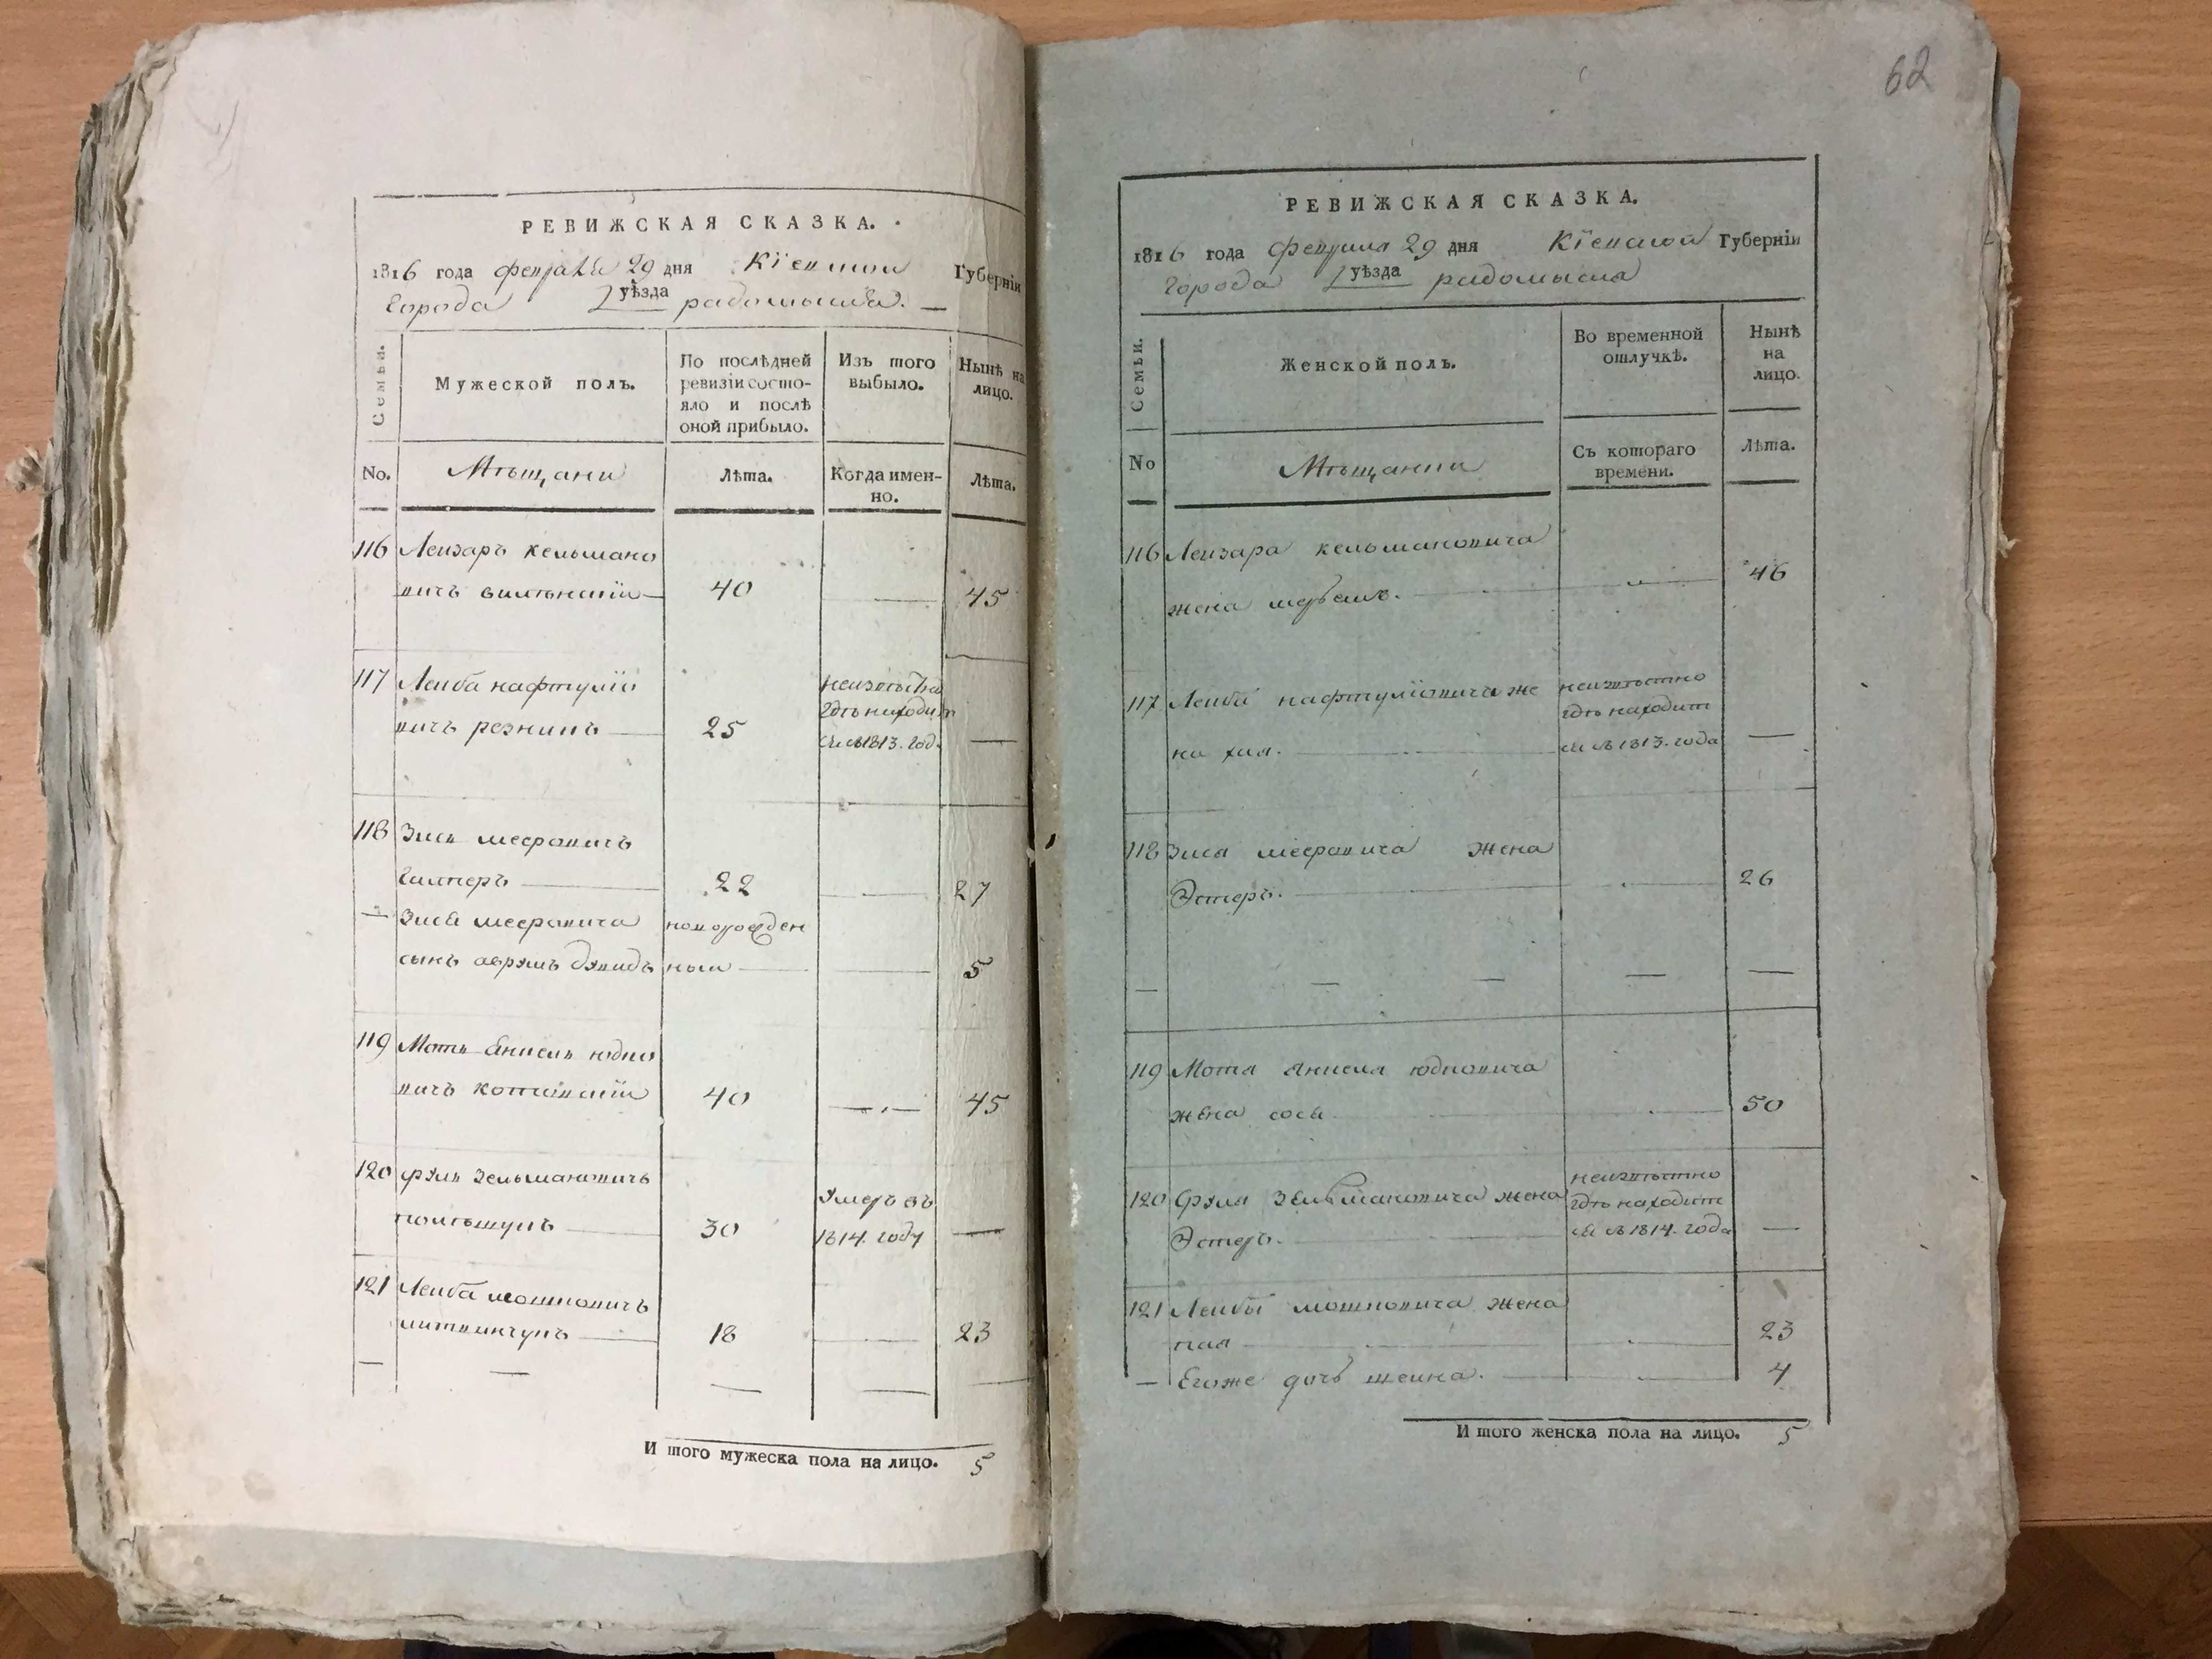 РЕВИЖСКАЯ СКАЗКА.
1816 года февраля 29 дня Кіевской Губерніи
Города уѣзда радомысля.
Семьи.
Мужеской полъ.
По послѣдней
ревизіи состо-
яло и послѣ
оной прибыло.
Изъ того
выбыло.
Нынѣ на
лицо.
No.
Мѣщани
Лѣта.
Когда имен-
но.
Лѣта.
116 Леизаръ кельмано
вичъ вилѣнскій 40 45
117 Леиба нафтуліо
вичъ резникъ 25
неизвѣстно
гдѣ находит
ся съ 1813. года
118 Зись мееровичъ
22 27
Зися мееровича новорожден
сынъ аврумъ дувидъ ной 5
119 Моть Янкель юдко
вичъ 40 45
120 Фроль зельмановичъ
30
умеръ въ
1814. году
121 Леиба мошковичъ
литвинчукъ 18 23
И того мужеска пола на лицо. 5
62
РЕВИЖСКАЯ СКАЗКА.
1816 года февраля 29 дня Кіевской Губерніи
Города уѣзда радомысля
Семьи.
Женской полъ.
Во временной
отлучкѣ.
Нынѣ
на
лицо.
No
Мѣщанки
Съ котораго
времени.
Лѣта.
116 Леизара кельмановича
жена 46
117 Леибы нафтуліовича же
на хая.
неизвѣстно
гдѣ находит
ся съ 1813. года
118 Зися мееровича жена
Эстеръ. 26
119 Мотя Янкеля юдковича
жена сося 50
120 Фроля зельмановича жена
Эстеръ.
неизвѣстно
гдѣ находит
ся съ 1814. года
121 Леибы мошковича жена
23
Егоже дочь шеина. 4
И того женска пола на лицо. 5